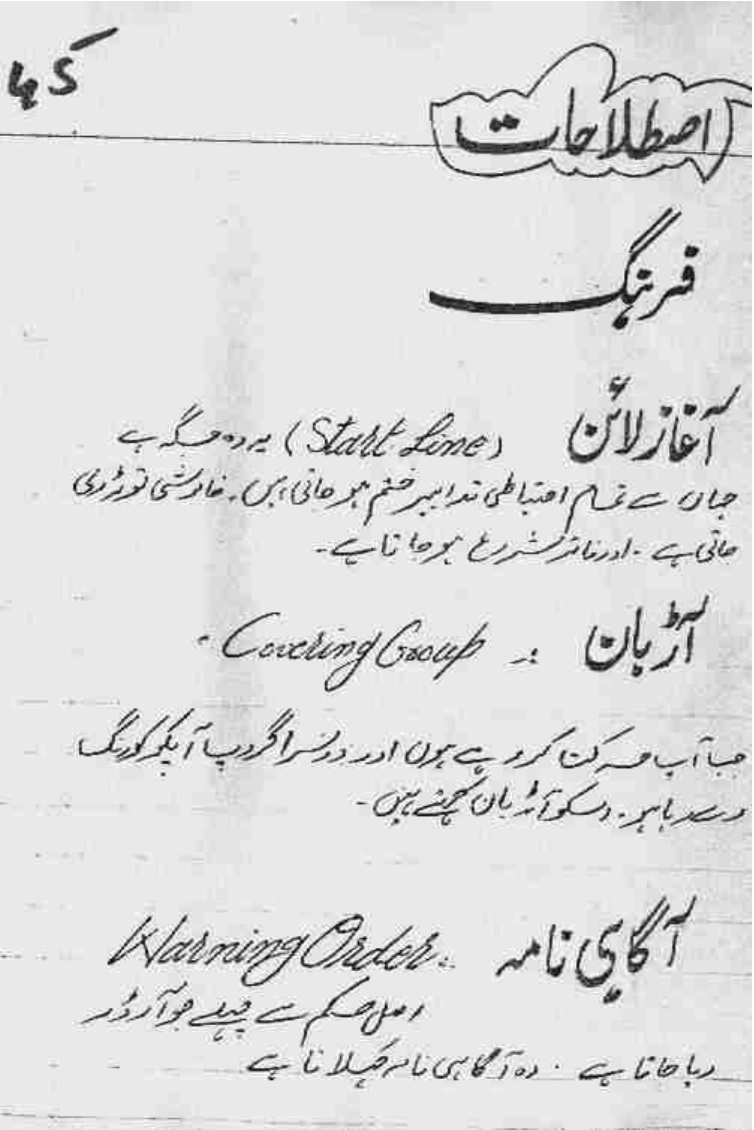 اصطلاحات
فرہنگ
آغاز لائن (Start Line) یہ وہ جگہ ہے
جہاں سے تمام احتیاطی تدابیر ختم ہو جاتی ہیں۔ خاموشی توڑ دی
جاتی ہے ۔ اور فائر شروع ہو جاتا ہے۔
آڑبان :۔ Covering Group ۔
جب آپ حرکت کر رہے ہوں اور دوسرا گروپ آپکو کورنگ
دے رہا ہو۔ اسکو آڑبان کہتے ہیں۔
آگاہی نامہ :۔ Warning Order
اصل حکم سے پہلے جو آرڈر
دیا جاتا ہے ۔ وہ آگاہی نامہ کہلاتا ہے